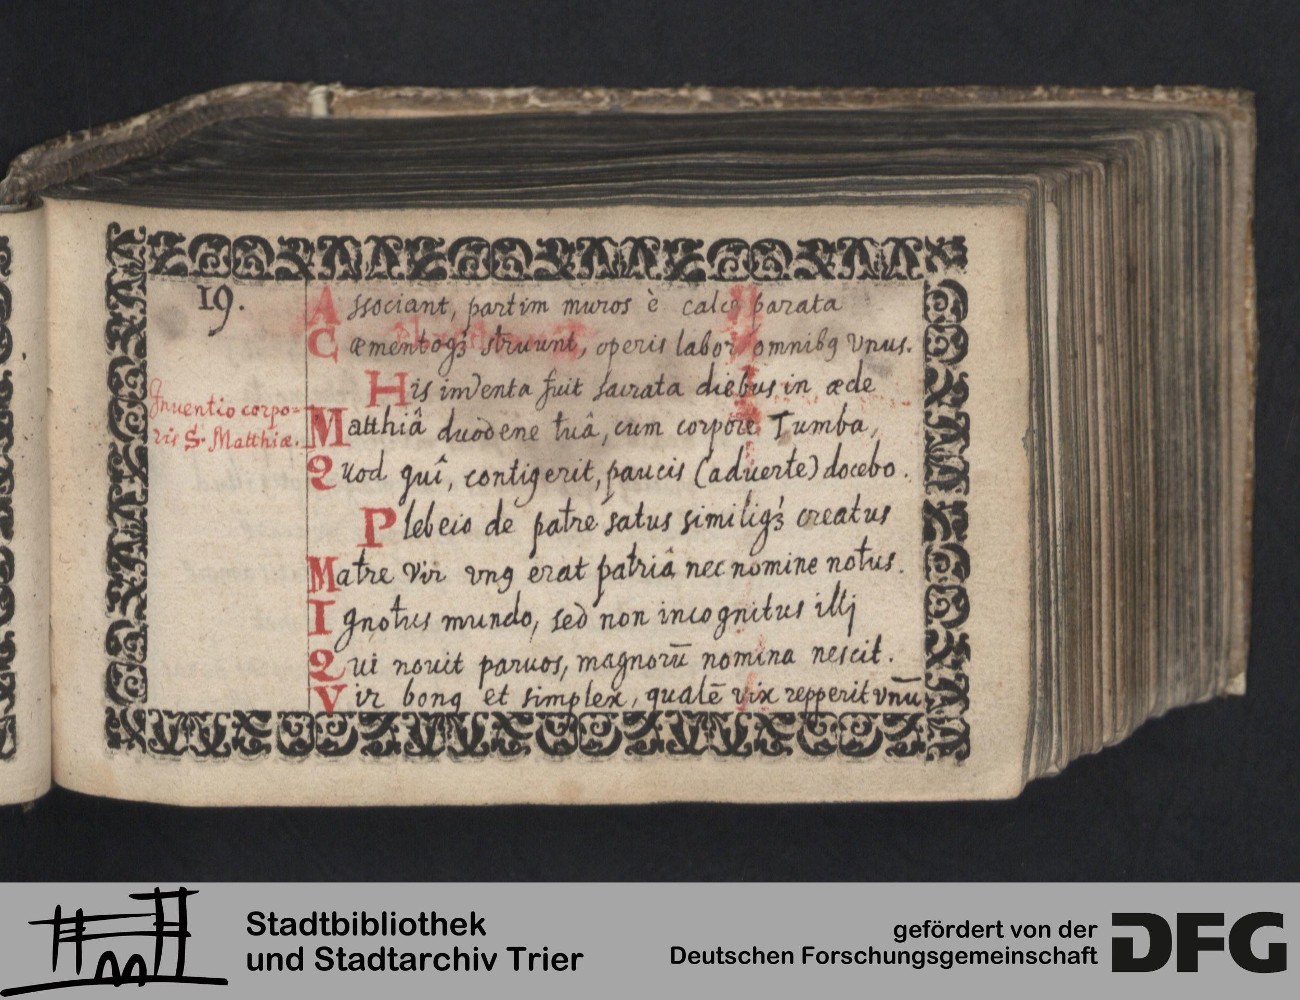 19.
Associant, partim muros è calce parata
Cæmentoqꝫ struunt, operis labor omnibꝯ vnus.
His inventa fuit sacrata diebus in æde
Inuentio corpo-
ris S. Matthiæ.
Matthiâ duodene tuâ, cum corpore Tumba,
Quod quî, contigerit, paucis (aduerte) docebo.
Plebeio de patre satus similiqꝫ creatus
Matre vir vnꝯ erat patriâ nec nomine notus.
Ignotus mundo, sed non incognitus illj
Qui nouit paruos, magnorū nomina nescit.
Vir bonꝯ et simplex, qualē vix repperit vnū
Stadtbibliothek
und Stadtarchiv Trier
gefördert von der
Deutschen Forschungsgemeinschaft
DFG